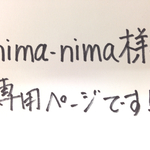 nima-nima様
専用ページです!